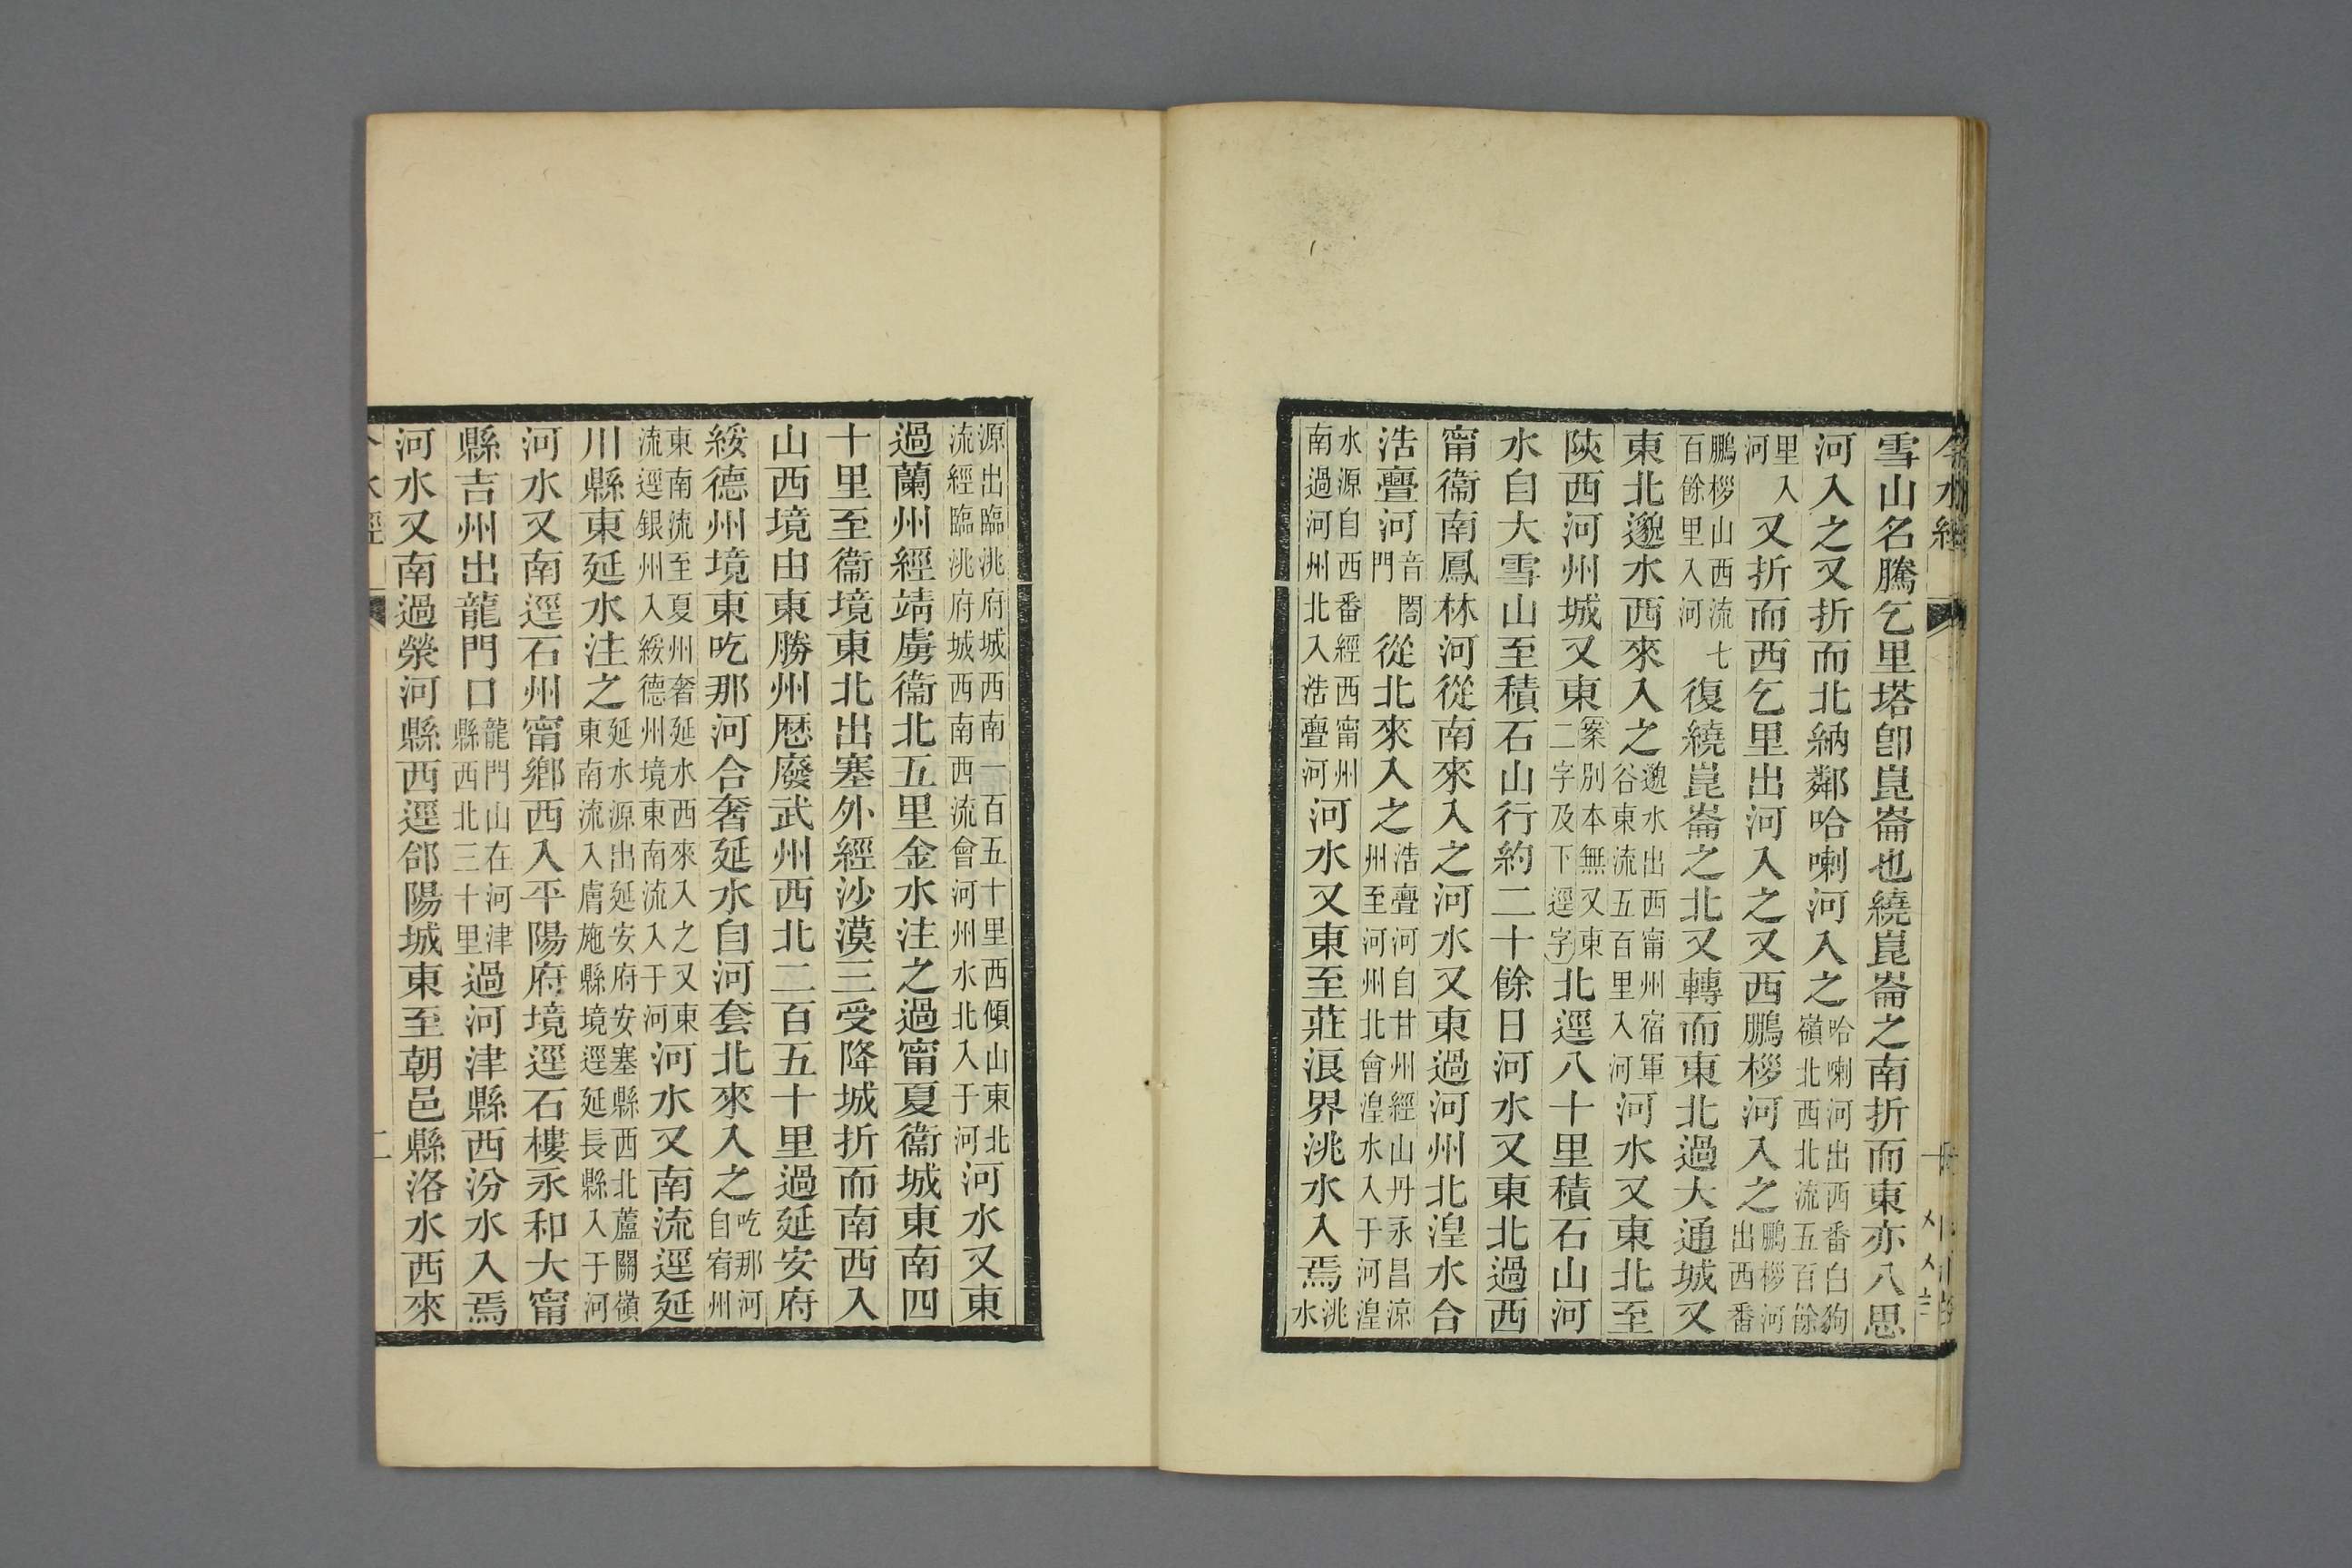 今水經
雪山名騰乞里塔卽崑崙也繞崑崙之南折而東亦八思
河入之又折而北納鄰哈喇河入之哈喇河出西番白狗嶺北西北流五百餘
里入河又折而西乞里出河入之又西鵬㮳河入之鵬㮳河出西番
鵬㮳山西流七百餘里入河復繞崑崙之北又轉而東北過大通城又
東北邈水西來入之邈水出西甯州宿軍谷東流五百里入河河水又東北至
陝西河州城又東案別本無又東二字及下逕字北逕八十里積石山河
水自大雪山至積石山行約二十餘日河水又東北過西
甯衞南鳳林河從南來入之河水又東過河州北湟水合
浩亹河音閤門從北來入之浩亹河自甘州經山丹永昌涼州至河州北會湟水入于河湟
水源自西番經西甯州南過河州北入浩亹河河水又東至莊浪界洮水入焉洮水
源出臨洮府城西南一百五十里西傾山東北流經臨洮府城西南西流會河州水北入于河河水又東
過蘭州經靖虜衞北五里金水注之過甯夏衞城東南四
十里至衞境東北出塞外經沙漠三受降城折而南西入
山西境由東勝州歷廢武州西北二百五十里過延安府
綏德州境東吃那河合奢延水自河套北來入之吃那河自宥州
東南流至夏州奢延水西來入之又東流逕銀州入綏德州境東南流入于河河水又南流逕延
川縣東延水注之延水源出延安府安塞縣西北蘆關嶺東南流入膚施縣境逕延長縣入于河
河水又南逕石州甯鄉西入平陽府境逕石樓永和大甯
縣吉州出龍門口龍門山在河津縣西北三十里過河津縣西汾水入焉
河水又南過滎河縣西逕郃陽城東至朝邑縣洛水西來
二